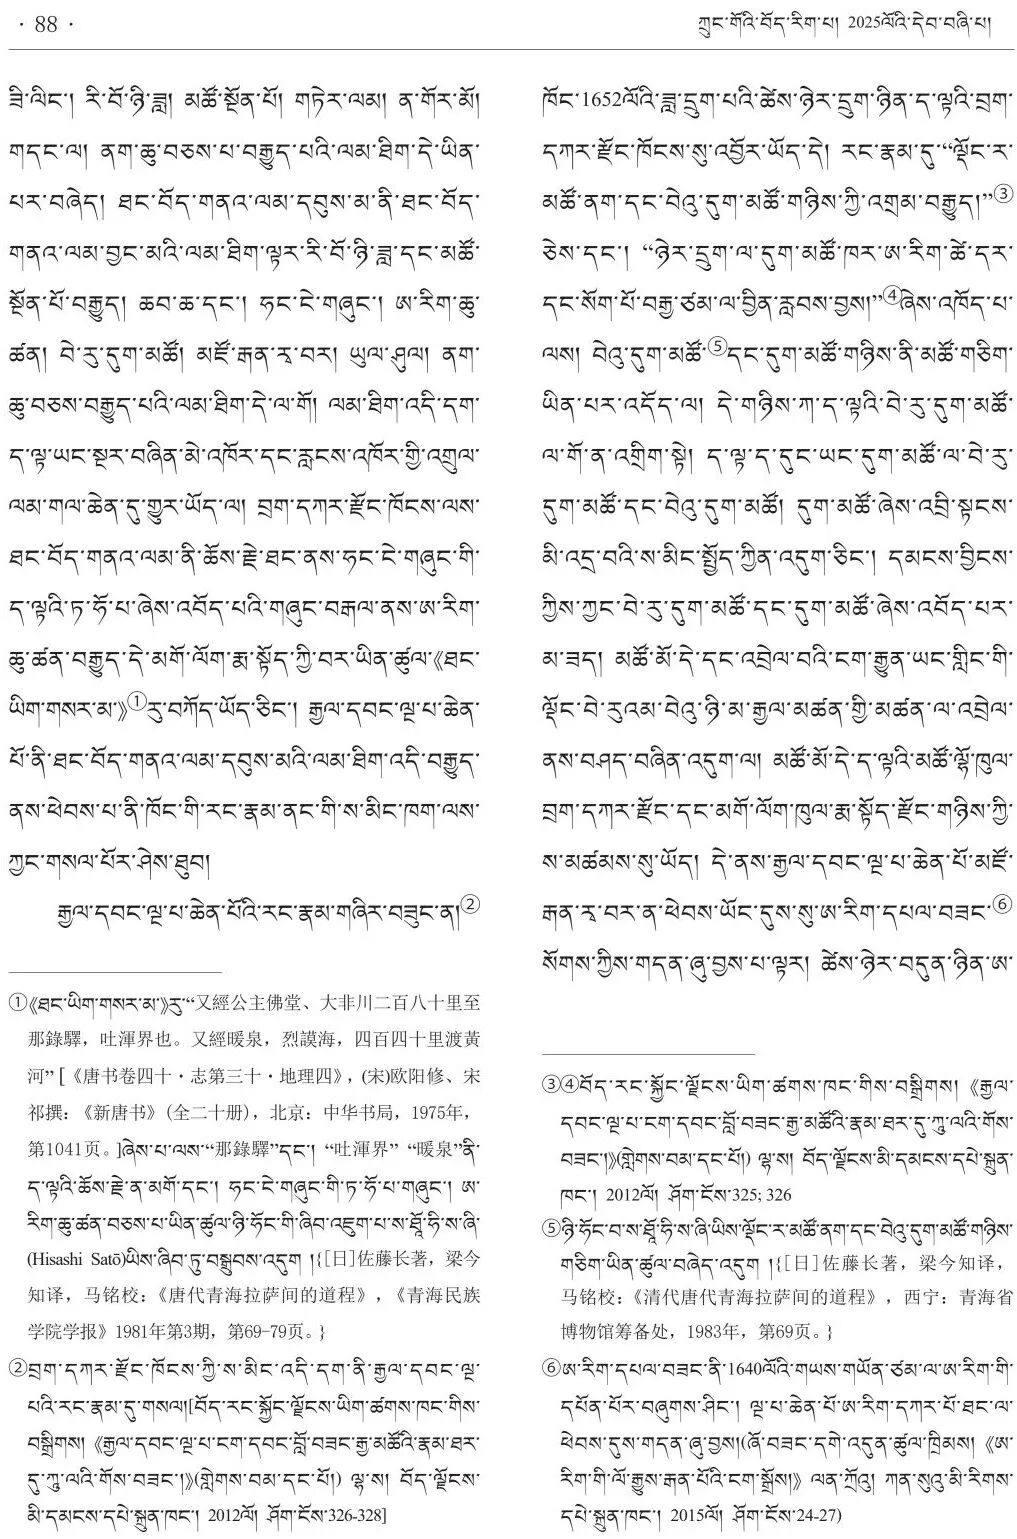 · 88 ·
ཀྲུང་གོའི་བོད་རིག་པ། 2025ལོའི་དེབ་བཞི་པ།
ཟི་ལིང་། རི་བོ་ཉི་ཟླ། མཚོ་སྔོན་པོ། གཏེར་ལམ། ན་གོར་མོ།
གདང་ལ། ནག་ཆུ་བཅས་པ་བརྒྱུད་པའི་ལམ་ཐིག་དེ་ཡིན་
པར་བཞེད། ཐང་བོད་གནའ་ལམ་དབུས་མ་ནི་ཐང་བོད་
གནའ་ལམ་བྱང་མའི་ལམ་ཐིག་ལྟར་རི་བོ་ཉི་ཟླ་དང་མཚོ་
སྔོན་པོ་བརྒྱུད། ཆབ་ཆ་དང་། ཧང་ངེ་གཞུང་། ཨ་རིག་ཆུ་
ཚན། བེ་རུ་དུག་མཚོ། མཛོ་རྒན་རྭ་བར། ཡུལ་ཤུལ། ནག་
ཆུ་བཅས་བརྒྱུད་པའི་ལམ་ཐིག་དེ་ལ་གོ། ལམ་ཐིག་འདི་དག་
ད་ལྟ་ཡང་སྔར་བཞིན་མེ་འཁོར་དང་རླངས་འཁོར་གྱི་འགྲུལ་
ལམ་གལ་ཆེན་དུ་གྱུར་ཡོད་ལ། བྲག་དཀར་རྫོང་ཁོངས་ལས་
ཐང་བོད་གནའ་ལམ་ནི་ཆོས་རྗེ་ཐང་ནས་ཧང་ངེ་གཞུང་གི་
ད་ལྟའི་ཏ་ཧོ་པ་ཞེས་འབོད་པའི་གཞུང་བརྒལ་ནས་ཨ་རིག་
ཆུ་ཚན་བརྒྱུད་དེ་མགོ་ལོག་རྨ་སྟོད་ཀྱི་བར་ཡིན་ཚུལ་《ཐང་
ཡིག་གསར་མ་》①རུ་བཀོད་ཡོད་ཅིང་། རྒྱལ་དབང་ལྔ་པ་ཆེན་
པོ་ནི་ཐང་བོད་གནའ་ལམ་དབུས་མའི་ལམ་ཐིག་འདི་བརྒྱུད་
ནས་ཕེབས་པ་ནི་ཁོང་གི་རང་རྣམ་ནང་གི་ས་མིང་ཁག་ལས་
ཀྱང་གསལ་པོར་ཤེས་ཐུབ།
རྒྱལ་དབང་ལྔ་པ་ཆེན་པོའི་རང་རྣམ་གཞིར་བཟུང་ན།②
①《ཐང་ཡིག་གསར་མ་》རུ་“又經公主佛堂、大非川二百八十里至
那錄驛，吐渾界也。又經暖泉，烈謨海，四百四十里渡黃
河” [《唐书卷四十・志第三十・地理四》，(宋)欧阳修、宋
祁撰：《新唐书》(全二十册)，北京：中华书局，1975年，
第1041页。]ཞེས་པ་ལས་“那錄驛”དང་། “吐渾界” “暖泉”ནི་
ད་ལྟའི་ཆོས་རྗེ་ན་མགོ་དང་། ཧང་ངེ་གཞུང་གི་ཏ་ཧོ་པ་གཞུང་། ཨ་
རིག་ཆུ་ཚན་བཅས་པ་ཡིན་ཚུལ་ཉི་ཧོང་གི་ཞིབ་འཇུག་པ་ས་ཐཱོ་ཧི་ས་ཞི་
(Hisashi Satō)ཡིས་ཞིབ་ཏུ་བསྒྲུབས་འདུག །{[日]佐藤长著，梁今
知译，马铭校：《唐代青海拉萨间的道程》，《青海民族
学院学报》1981年第3期，第69-79页。}
②བྲག་དཀར་རྫོང་ཁོངས་ཀྱི་ས་མིང་འདི་དག་ནི་རྒྱལ་དབང་ལྔ་
པའི་རང་རྣམ་དུ་གསལ།[བོད་རང་སྐྱོང་ལྗོངས་ཡིག་ཚགས་ཁང་གིས་
བསྒྲིགས། 《རྒྱལ་དབང་ལྔ་པ་ངག་དབང་བློ་བཟང་རྒྱ་མཚོའི་རྣམ་ཐར་
དུ་ཀཱུ་ལའི་གོས་བཟང་།》(གླེགས་བམ་དང་པོ།) ལྷ་ས། བོད་ལྗོངས་
མི་དམངས་དཔེ་སྐྲུན་ཁང་། 2012ལོ། ཤོག་ངོས་326-328]
ཁོང་1652ལོའི་ཟླ་དྲུག་པའི་ཚེས་ཉེར་དྲུག་ཉིན་ད་ལྟའི་བྲག་
དཀར་རྫོང་ཁོངས་སུ་འབྱོར་ཡོད་དེ། རང་རྣམ་དུ་“ལྡོང་ར་
མཚོ་ནག་དང་བེའུ་དུག་མཚོ་གཉིས་ཀྱི་འགྲམ་བརྒྱུད།”③
ཅེས་དང་། “ཉེར་དྲུག་ལ་དུག་མཚོ་ཁར་ཨ་རིག་ཚེ་དར་
དང་སོག་པོ་བརྒྱ་ཙམ་ལ་བྱིན་རླབས་བྱས།”④ཞེས་འཁོད་པ་
ལས། བེའུ་དུག་མཚོ་⑤དང་དུག་མཚོ་གཉིས་ནི་མཚོ་གཅིག་
ཡིན་པར་འདོད་ལ། དེ་གཉིས་ཀ་ད་ལྟའི་བེ་རུ་དུག་མཚོ་
ལ་གོ་ན་འགྲིག་སྟེ། ད་ལྟ་ད་དུང་ཡང་དུག་མཚོ་ལ་བེ་རུ་
དུག་མཚོ་དང་བེའུ་དུག་མཚོ། དུག་མཚོ་ཞེས་འབྲི་སྟངས་
མི་འདྲ་བའི་ས་མིང་སྤྱོད་ཀྱིན་འདུག་ཅིང་། དམངས་བྱིངས་
ཀྱིས་ཀྱང་བེ་རུ་དུག་མཚོ་དང་དུག་མཚོ་ཞེས་འབོད་པར་
མ་ཟད། མཚོ་མོ་དེ་དང་འབྲེལ་བའི་ངག་རྒྱུན་ཡང་གླིང་གི་
ལྡོང་བེ་རུའམ་བེའུ་ཉི་མ་རྒྱལ་མཚན་གྱི་མཚན་ལ་འབྲེལ་
ནས་བཤད་བཞིན་འདུག་ལ། མཚོ་མོ་དེ་ད་ལྟའི་མཚོ་ལྷོ་ཁུལ་
བྲག་དཀར་རྫོང་དང་མགོ་ལོག་ཁུལ་རྨ་སྟོད་རྫོང་གཉིས་ཀྱི་
ས་མཚམས་སུ་ཡོད། དེ་ནས་རྒྱལ་དབང་ལྔ་པ་ཆེན་པོ་མཛོ་
རྒན་རྭ་བར་ན་ཕེབས་ཡོང་དུས་སུ་ཨ་རིག་དཔལ་བཟང་⑥
སོགས་ཀྱིས་གདན་ཞུ་བྱས་པ་ལྟར། ཚེས་ཉེར་བདུན་ཉིན་ཨ་
③④བོད་རང་སྐྱོང་ལྗོངས་ཡིག་ཚགས་ཁང་གིས་བསྒྲིགས། 《རྒྱལ་
དབང་ལྔ་པ་ངག་དབང་བློ་བཟང་རྒྱ་མཚོའི་རྣམ་ཐར་དུ་ཀཱུ་ལའི་གོས་
བཟང་།》(གླེགས་བམ་དང་པོ།) ལྷ་ས། བོད་ལྗོངས་མི་དམངས་དཔེ་སྐྲུན་
ཁང་། 2012ལོ། ཤོག་ངོས་325; 326
⑤ཉི་ཧོང་བ་ས་ཐཱོ་ཧི་ས་ཞི་ཡིས་ལྡོང་ར་མཚོ་ནག་དང་བེའུ་དུག་མཚོ་གཉིས་
གཅིག་ཡིན་ཚུལ་བཞེད་འདུག །{[日]佐藤长著，梁今知译，
马铭校：《清代唐代青海拉萨间的道程》，西宁：青海省
博物馆筹备处，1983年，第69页。}
⑥ཨ་རིག་དཔལ་བཟང་ནི་1640ལོའི་གཡས་གཡོན་ཙམ་ལ་ཨ་རིག་གི་
དཔོན་པོར་བཞུགས་ཤིང་། ལྔ་པ་ཆེན་པོ་ཨ་རིག་དཀར་པོ་ཐང་ལ་
ཕེབས་དུས་གདན་ཞུ་བྱས།(ཞོ་བཟང་དགེ་འདུན་ཚུལ་ཁྲིམས། 《ཨ་
རིག་གི་ལོ་རྒྱུས་རྒན་པོའི་ངག་སྒྲོས།》 ལན་ཀྲོའུ། ཀན་སུའུ་མི་རིགས་
དཔེ་སྐྲུན་ཁང་། 2015ལོ། ཤོག་ངོས་24-27)